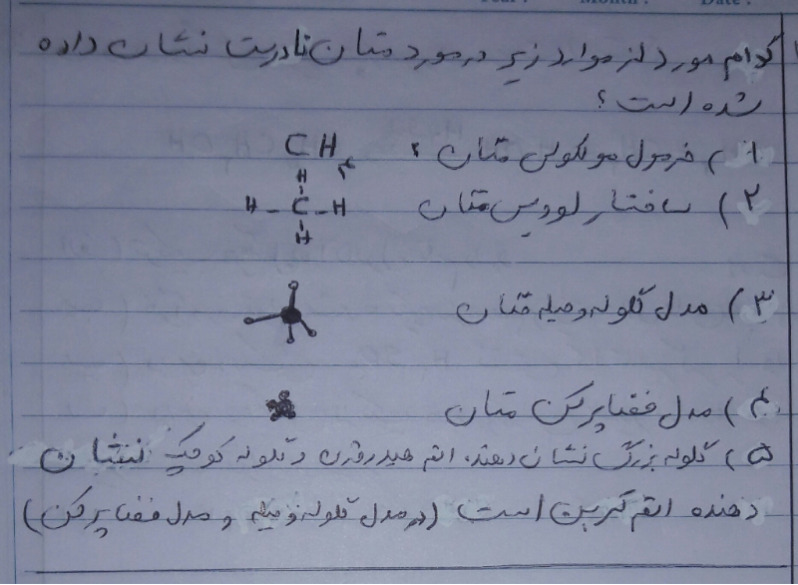 Year : Month : Date :
کدام مورد از موارد زیر در مورد متان نادرست نشان داده
شده است؟
۱) فرمول مولکولی متان : CH۴
۲) ساختار لوویس متان
H
H - C - H
H
۳) مدل گلوله و میله متان
۴) مدل فضا پرکن متان
۵) گلوله بزرگ نشان دهنده اتم هیدروژن و گلوله کوچک نشان
دهنده اتم کربن است (در مدل گلوله و میله و مدل فضا پرکن)